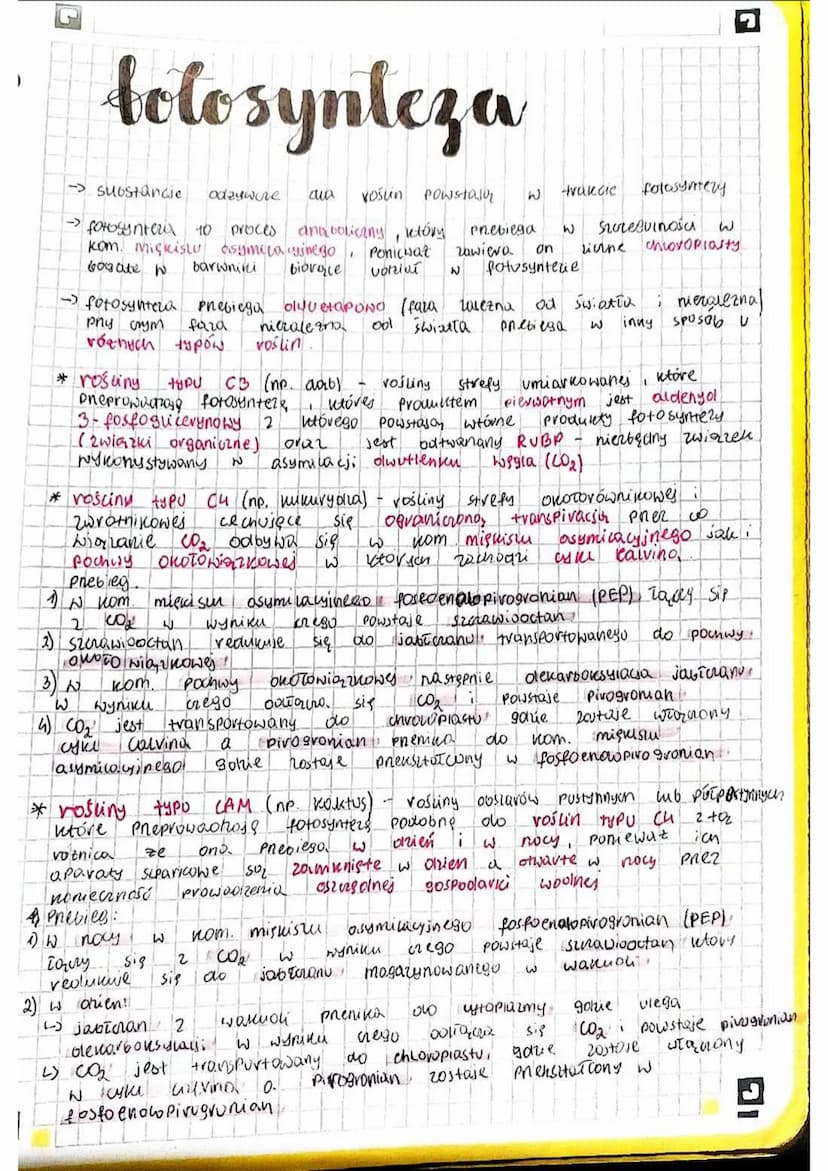 fotosynteza
→ substancje odżywcze dla roślin powstają w trakcie fotosyntezy
→ fotosynteza to proces anaboliczny, który przebiega w szczególności w
kom. miękiszu asymilacyjnego, ponieważ zawiera on liczne chloroplasty
bogate w barwniki biorące udział w fotosyntezie
→ fotosynteza przebiega dwuetapowo (faza zależna od światła i niezależna)
przy czym faza niezależna od światła przebiega w inny sposób u
różnych typów roślin.
* rośliny typu C3 (np. dąb) - rośliny strefy umiarkowanej, które
przeprowadzają fotosyntezę, której produktem pierwotnym jest aldehyd
3-fosfoglicerynowy z którego powstają wtórne produkty fotosyntezy
(związki organiczne) oraz jest odtwarzany RUBP - niezbędny związek
wykorzystywany w asymilacji dwutlenku węgla (CO2)
* rośliny typu C4 (np. kukurydza) - rośliny strefy okołorównikowej i
zwrotnikowej cechujące się ograniczoną transpiracją przez co
wiązanie CO2 odbywa się w kom miękiszu asymilacyjnego jak i
pochwy okołowiązkowej w których zachodzi cykl Calvina.
Przebieg.
1) w kom. miękiszu asymilacyjnego fosfoenolopirogronian (PEP) łączy się
z CO2 w wyniku czego powstaje szczawiooctan
2) szczawiooctan redukuje się do jabłczanu transportowanego do pochwy
okołowiązkowej
3) w kom. pochwy okołowiązkowej następnie dekarboksylacja jabłczanu
w wyniku czego odłącza się CO2 i powstaje pirogronian
4) CO2 jest transportowany do chloroplastu gdzie zostaje włączony
cykl Calvina a pirogronian przenika do kom. miękiszu
asymilacyjnego gdzie zostaje przekształcony w fosfoenolopirogronian.
* rośliny typu CAM (np. kaktus) - rośliny obszarów pustynnych lub półpustynnych
które przeprowadzają fotosyntezę podobną do roślin typu C4 z tą
różnicą że ona przebiega w dzień i w nocy, ponieważ ich
aparaty szparkowe są zamknięte w dzień a otwarte w nocy przez
konieczność prowadzenia oszczędnej gospodarki wodnej
Przebieg:
1) w nocy w kom. miękiszu asymilacyjnego fosfoenolopirogronian (PEP)
łączy się z CO2 w wyniku czego powstaje szczawiooctan który
redukuje się do jabłczanu magazynowanego w wakuoli.
2) w dzień:
↳ jabłczan z wakuoli przenika do cytoplazmy gdzie ulega
dekarboksylacji w wyniku czego odłącza się CO2 i powstaje pirogronian
↳ CO2 jest transportowany do chloroplastu, gdzie zostaje włączony
w cykl Calvina a pirogronian zostaje przekształcony w
fosfoenolopirogronian